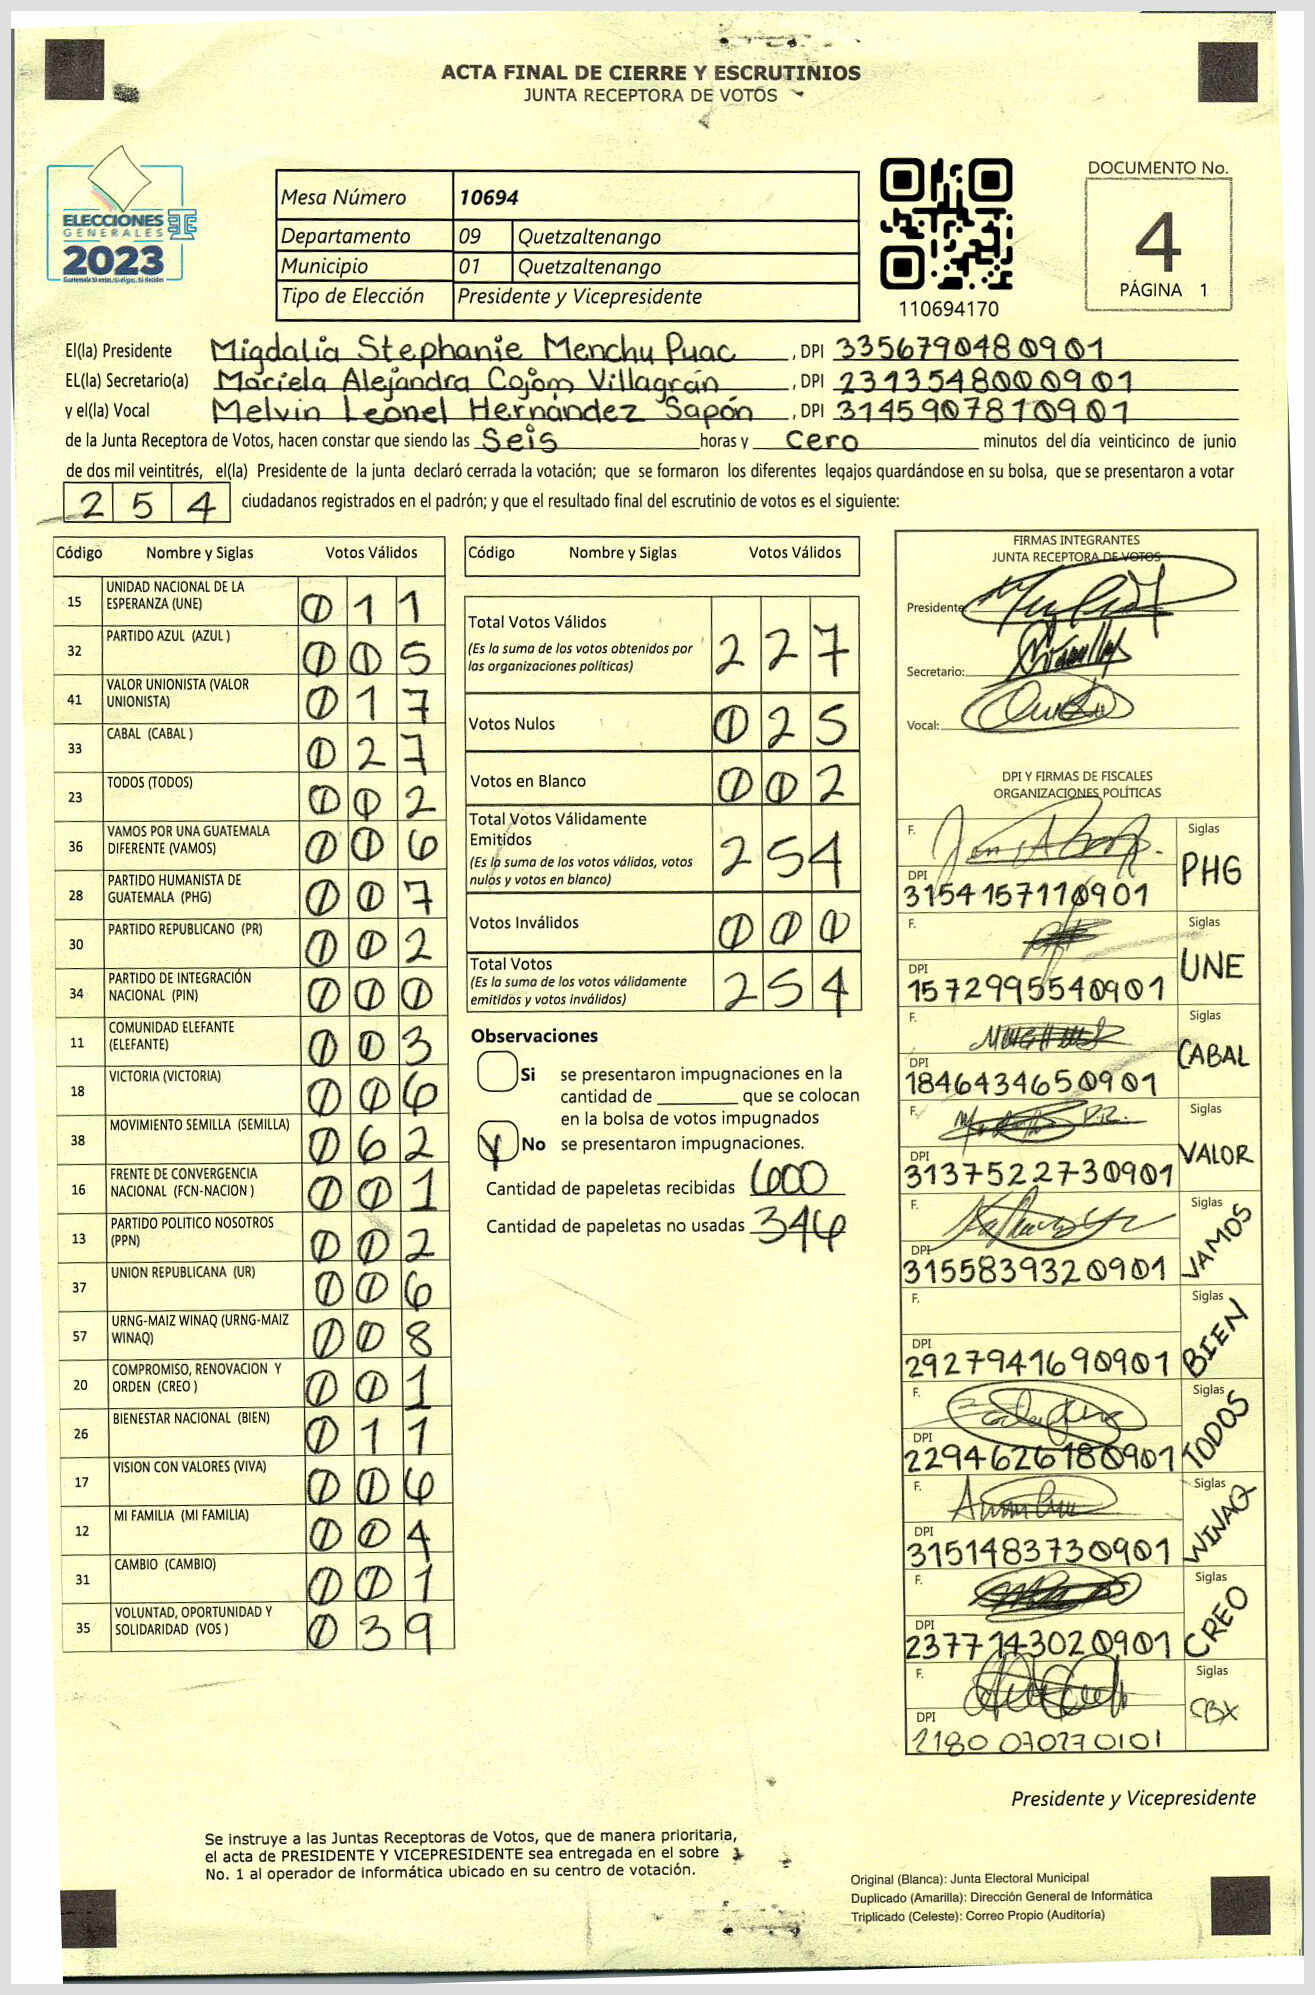 ACTA FINAL DE CIERRE Y ESCRUTINIOS
JUNTA RECEPTORA DE VOTOS
ELECCIONES
GENERALES
2023
Mesa Número 10694
Departamento 09 Quetzaltenango
Municipio 01 Quetzaltenango
Tipo de Elección Presidente y Vicepresidente
110694170
DOCUMENTO No.
4
PÁGINA 1
El(la) Presidente Migdalia Stephanie Menchu Puac, DPI 3356790480901
EL(la) Secretario(a) Mariela Alejandra Cojom Villagrán, DPI 2313548000901
y el(la) Vocal Melvin Leonel Hernández Sapón, DPI 3145907810901
de la Junta Receptora de Votos, hacen constar que siendo las Seis horas y cero minutos del día veinticinco de junio
de dos mil veintitrés, el(la) Presidente de la junta declaró cerrada la votación; que se formaron los diferentes legajos quardándose en su bolsa, que se presentaron a votar
254 ciudadanos registrados en el padrón; y que el resultado final del escrutinio de votos es el siguiente:
Código Nombre y Siglas Votos Válidos
15 UNIDAD NACIONAL DE LA ESPERANZA (UNE) 011
32 PARTIDO AZUL (AZUL ) 005
41 VALOR UNIONISTA (VALOR UNIONISTA) 017
33 CABAL (CABAL ) 027
23 TODOS (TODOS) 002
36 VAMOS POR UNA GUATEMALA DIFERENTE (VAMOS) 006
28 PARTIDO HUMANISTA DE GUATEMALA (PHG) 007
30 PARTIDO REPUBLICANO (PR) 002
34 PARTIDO DE INTEGRACIÓN NACIONAL (PIN) 000
11 COMUNIDAD ELEFANTE (ELEFANTE) 003
18 VICTORIA (VICTORIA) 006
38 MOVIMIENTO SEMILLA (SEMILLA) 062
16 FRENTE DE CONVERGENCIA NACIONAL (FCN-NACION ) 001
13 PARTIDO POLITICO NOSOTROS (PPN) 002
37 UNION REPUBLICANA (UR) 006
57 URNG-MAIZ WINAQ (URNG-MAIZ WINAQ) 008
20 COMPROMISO, RENOVACION Y ORDEN (CREO ) 001
26 BIENESTAR NACIONAL (BIEN) 011
17 VISION CON VALORES (VIVA) 006
12 MI FAMILIA (MI FAMILIA) 004
31 CAMBIO (CAMBIO) 001
35 VOLUNTAD, OPORTUNIDAD Y SOLIDARIDAD (VOS ) 039
Código Nombre y Siglas Votos Válidos
Total Votos Válidos 227
(Es la suma de los votos obtenidos por
las organizaciones políticas)
Votos Nulos 025
Votos en Blanco 002
Total Votos Válidamente
Emitidos 254
(Es la suma de los votos válidos, votos
nulos y votos en blanco)
Votos Inválidos 000
Total Votos 254
(Es la suma de los votos válidamente
emitidos y votos inválidos)
Observaciones
Si se presentaron impugnaciones en la
cantidad de ________ que se colocan
en la bolsa de votos impugnados
No se presentaron impugnaciones.
Cantidad de papeletas recibidas 600
Cantidad de papeletas no usadas 346
FIRMAS INTEGRANTES
JUNTA RECEPTORA DE VOTOS
Presidente:
Secretario:
Vocal:
DPI Y FIRMAS DE FISCALES
ORGANIZACIONES POLÍTICAS
F. Siglas PHG
DPI 3154157110901
F. Siglas UNE
DPI 1572995540901
F. Siglas CABAL
DPI 1846434650901
F. Siglas VALOR
DPI 3137522730901
F. Siglas VAMOS
DPI 3155839320901
F. Siglas BIEN
DPI 2927941690901
F. Siglas TODOS
DPI 2294626180901
F. Siglas WINAQ
DPI 3151483730901
F. Siglas CREO
DPI 2377143020901
F. Siglas
DPI 2180 070270101
Presidente y Vicepresidente
Se instruye a las Juntas Receptoras de Votos, que de manera prioritaria,
el acta de PRESIDENTE Y VICEPRESIDENTE sea entregada en el sobre
No. 1 al operador de informática ubicado en su centro de votación.
Original (Blanca): Junta Electoral Municipal
Duplicado (Amarilla): Dirección General de Informática
Triplicado (Celeste): Correo Propio (Auditoría)